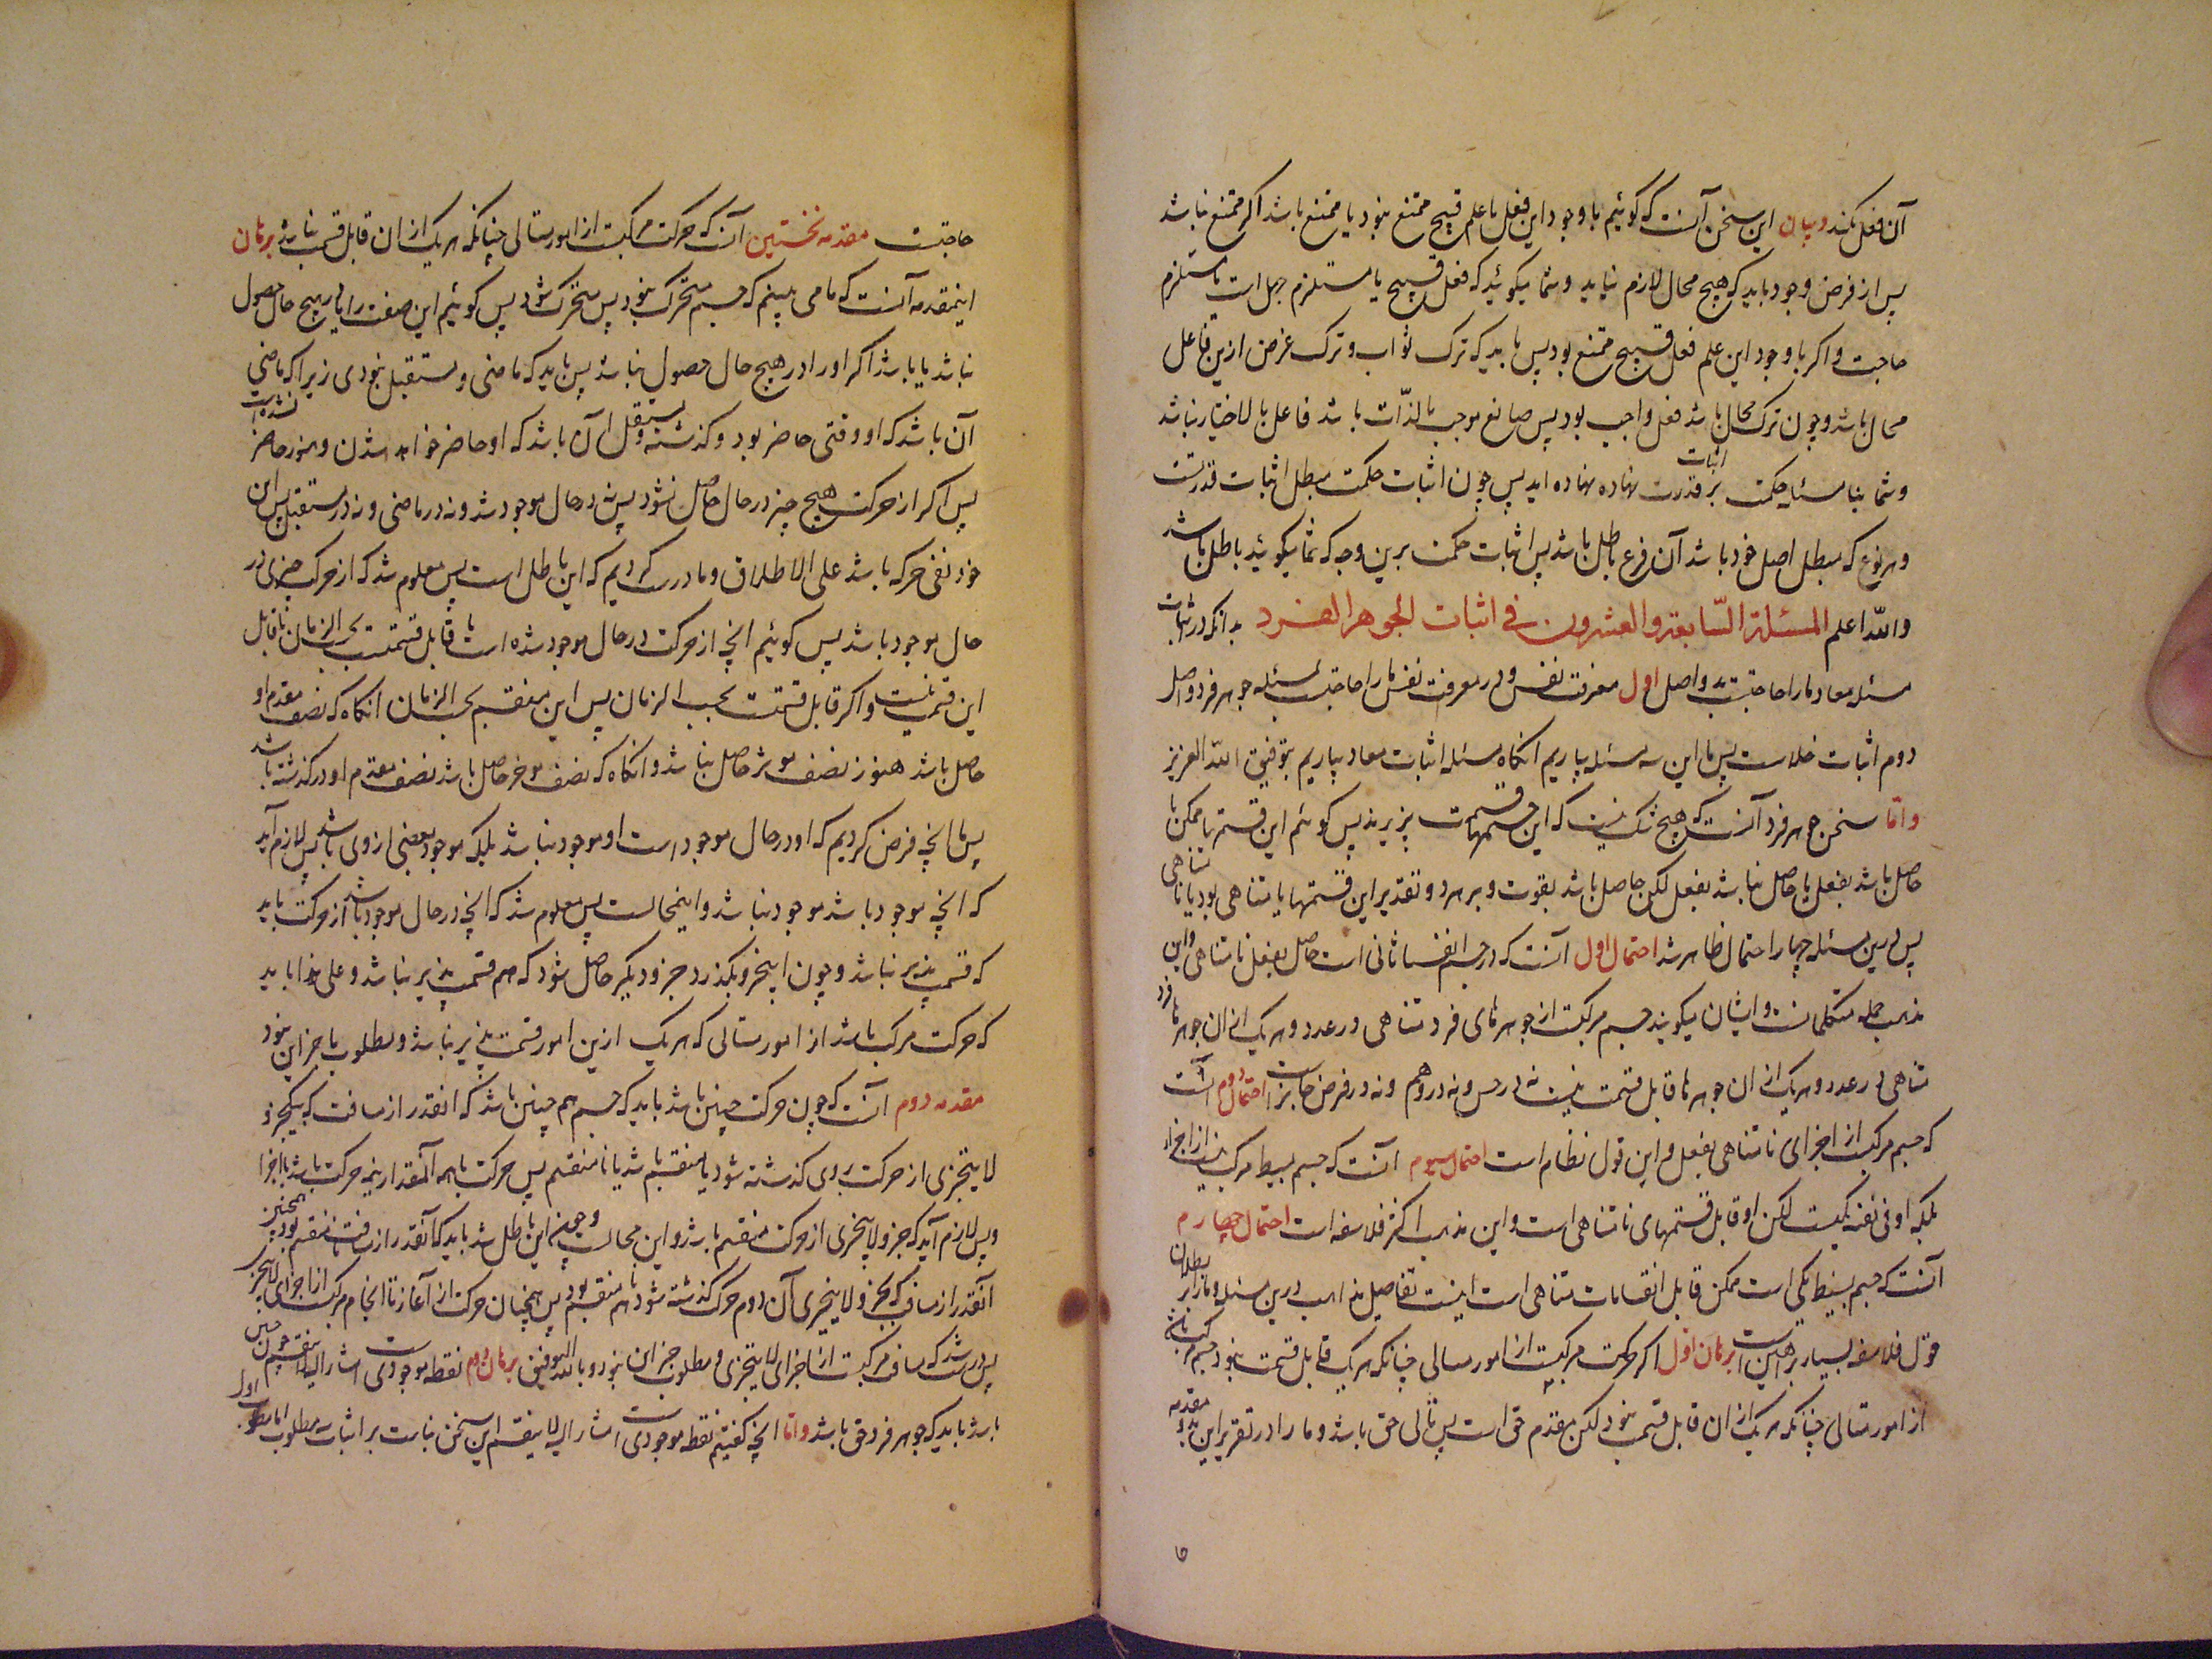 آن فعل نکند و بیان این سخن آنست که کوئیم باوجود این فعل با علم قبیح ممتنع نبود یا ممتنع باشد اکر ممتنع نباشد
پس از فرض وجود باید که هیچ محال لازم نیاید وشما میکوئید که فعل قبیح یا مستلزم جهل است یا مستلزم
حاجت واکر باوجود این علم فعل قبیح ممتنع بود پس باید که ترک ثواب وترک عوض ازین فاعل
محال باشد وچون ترک محال باشد فعل واجب بود پس صانع موجب بالذات باشد فاعل بالاختیار نباشد
وشما بنا مسئله حکمت بر اثبات قدرت نهاده نهاده اید پس چون اثبات حکمت مبطل اثبات قدرتست
وهر فرع که مبطل اصل خود باشد آن فرع باطل باشد پس اثبات حکمت برین وجه که شما میکوئید باطل باشد
والله اعلم المسئلة السابعة والعشرون فی اثبات الجوهر الفرد بدانکه در اثبات
مسئله معاد ما را حاجتست بدو اصل اول معرفت نفس ودر معرفت نفس ما را حاجتست بمسئله جوهر فرد واصل
دوم اثبات خلاست پس ما این سه مسئله بیاریم انکاه مسئله اثبات معاد بیاریم بتوفیق الله العزیز
واما سخن جوهر فرد آنست که هیچ شک نیست که این جسمها قسمت پذیرند پس کوئیم این قسمتهاء ممکن یا
حاصل باشد بفعل یا حاصل نباشد بفعل لکن حاصل باشد بقوت وبر هر دو تقدیر این قسمتها یا متناهی بود یا نامتناهی
پس درین مسئله چهار احتمال ظاهر شد احتمال اول آنست که در جسم انقسامات است حاصل بفعل نامتناهی واین
مذهب جمله متکلمانست وایشان میکویند جسم مرکبست از جوهرهای فرد متناهی در عدد وهر یک ازان جوهرها فرد
متناهی در عدد وهر یک ازان جوهرها قابل قسمت نیست نه در حس ونه در وهم ونه در فرض جایز است احتمال دوم آنست
که جسم مرکبست از اجزای نامتناهی بفعل واین قول نظام است احتمال سیوم آنست که جسم بسیط مرکب نیست از اجزاء
بلکه او فی نفسه یکیست لکن او قابل قسمتهای نامتناهی است واین مذهب اکثر فلاسفه است احتمال چهارم
آنست که جسم بسیط یکی است ممکن قابل انقسامات متناهی است اینست تفاصیل مذاهب درین مسئله وما را بر بطلان
قول فلاسفه بسیار براهین است برهان اول اکر حرکت مرکبست از امور متتالی چنانکه هر یک قابل قسمت نبود جسم مرکب باشد
از امور متتالی چنانکه هر یک ازان قابل قسمت نبود لکن مقدم حق است پس تالی حق باشد وما را در تقریر این بدو مقدمه
حاجتست مقدمه نخستین آنست که حرکت مرکبست از امور متتالی چنانکه هر یک ازان قابل قسمت نباشد برهان
اینمقدمه آنست که ما می بینیم که جسم متحرک نبود پس متحرک شود پس کوئیم این صفت را یا در هیچ حال حصول
نباشد یا باشد اکر او را در هیچ حال حصول نباشد پس باید که ماضی ومستقبل نبودی زیرا که ماضی
آن باشد که او وقتی حاضر بود وکذشته ومستقبل آن باشد که او حاضر خواهد شدن وهنوز حاضر نشده است
پس اکر از حرکت هیچ چیز در حال حاصل نشود پس نه در حال موجود شد ونه در ماضی ونه در مستقبل پس این
خود نفی حرکه باشد علی الاطلاق وما درست کردیم که این باطل است پس معلوم شد که از حرکت چیزی در
حال موجود باشد پس کوئیم آنچه از حرکت در حال موجود شده است یا قابل قسمتست بحسب الزمان یا قابل
این قسمت نیست واکر قابل قسمتست بحسب الزمان پس این منقسم بحسب الزمان انکاه که نصف مقدم او
حاصل باشد هنوز نصف موخر حاصل نباشد وانکاه که نصف موخر حاصل باشد نصف مقدم او در کذشته باشد
پس آنچه فرض کردیم که او در حال موجود است او موجود نباشد بلکه موجود بعضی از وی باشد پس لازم آید
که انچه موجود باشد موجود نباشد واینمحالست پس معلوم شد که انچه در حال موجود باشد از حرکت باید
که قسمت پذیر نباشد وچون این جزو بکذرد جزو دیکر حاصل شود که هم قسمت پذیر نباشد وعلی هذا باید
که حرکت مرکب باشد از امور متتالی که هر یک ازین امور قسمت پذیر نباشد ومطلوب ما جز این نبود
مقدمه دوم آنست که چون حرکت چنین باشد باید که جسم هم چنین باشد که انقدر از مسافت که بیکجزو
لا یتجزی از حرکت بروی کذشته شود یا منقسم باشد یا نامنقسم پس حرکت باهمه آنمقدار نیمه حرکت باشد تا اجزا
وپس لازم آید که جزو لا یتجزی از حرکت منقسم باشد واین محالست وچون این باطل شد باید که آنقدر از مسافت نامنقسم بود همچنین
آنقدر از مسافت که بجزو لا یتجزی آن دوم حرکت کذشته شود هم نامنقسم بود پس همچنان حرکت از آغاز تا انجام مرکبست از اجزای لا یتجزی
پس درست شد که مسافت مرکبست از اجزای لا یتجزی ومطلوب جز این نبود وبالله التوفیق برهان دوم نقطه موجودی است مشار الیه لا ینقسم چون چنین
باشد باید که جوهر فرد حق باشد واما انچه کفتیم نقطه موجودی است مشار الیه لا ینقسم این سخن بناست بر اثبات مطلوب اما مطلوب اول